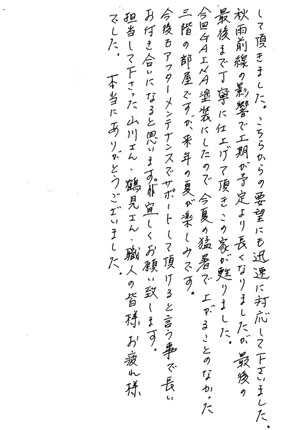 して頂きました。こちらからの要望にも迅速に対応して下さいました。
秋雨前線の影響で工期が予定より長くなりましたが最後の
最後まで丁寧に仕上げて頂きこの家が甦りました。
今回GAINA塗装にしたので今夏の猛暑で上がることのなかった
三階の部屋ですが、来年の夏が楽しみです。
今後もアフターメンテナンスでサポートして頂けると言う事で長い
お付き合いになると思います。宜しくお願い致します。
担当して下さった山川さん、鶴見さん、職人の皆様、お疲れ様
でした。本当にありがとうございました。